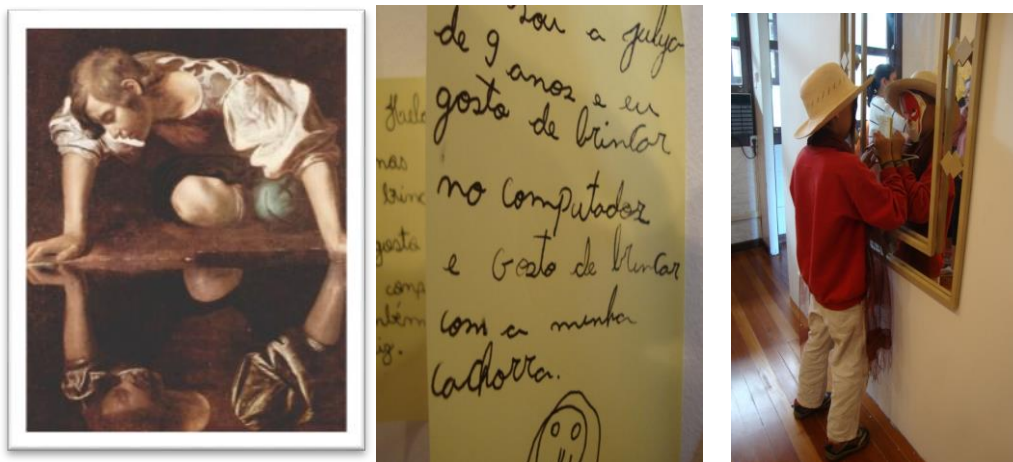 Sou a julya
de 9 anos e eu
gosto de brincar
no computador
e Gosto de brincar
com a minha
cachorra.
gosto